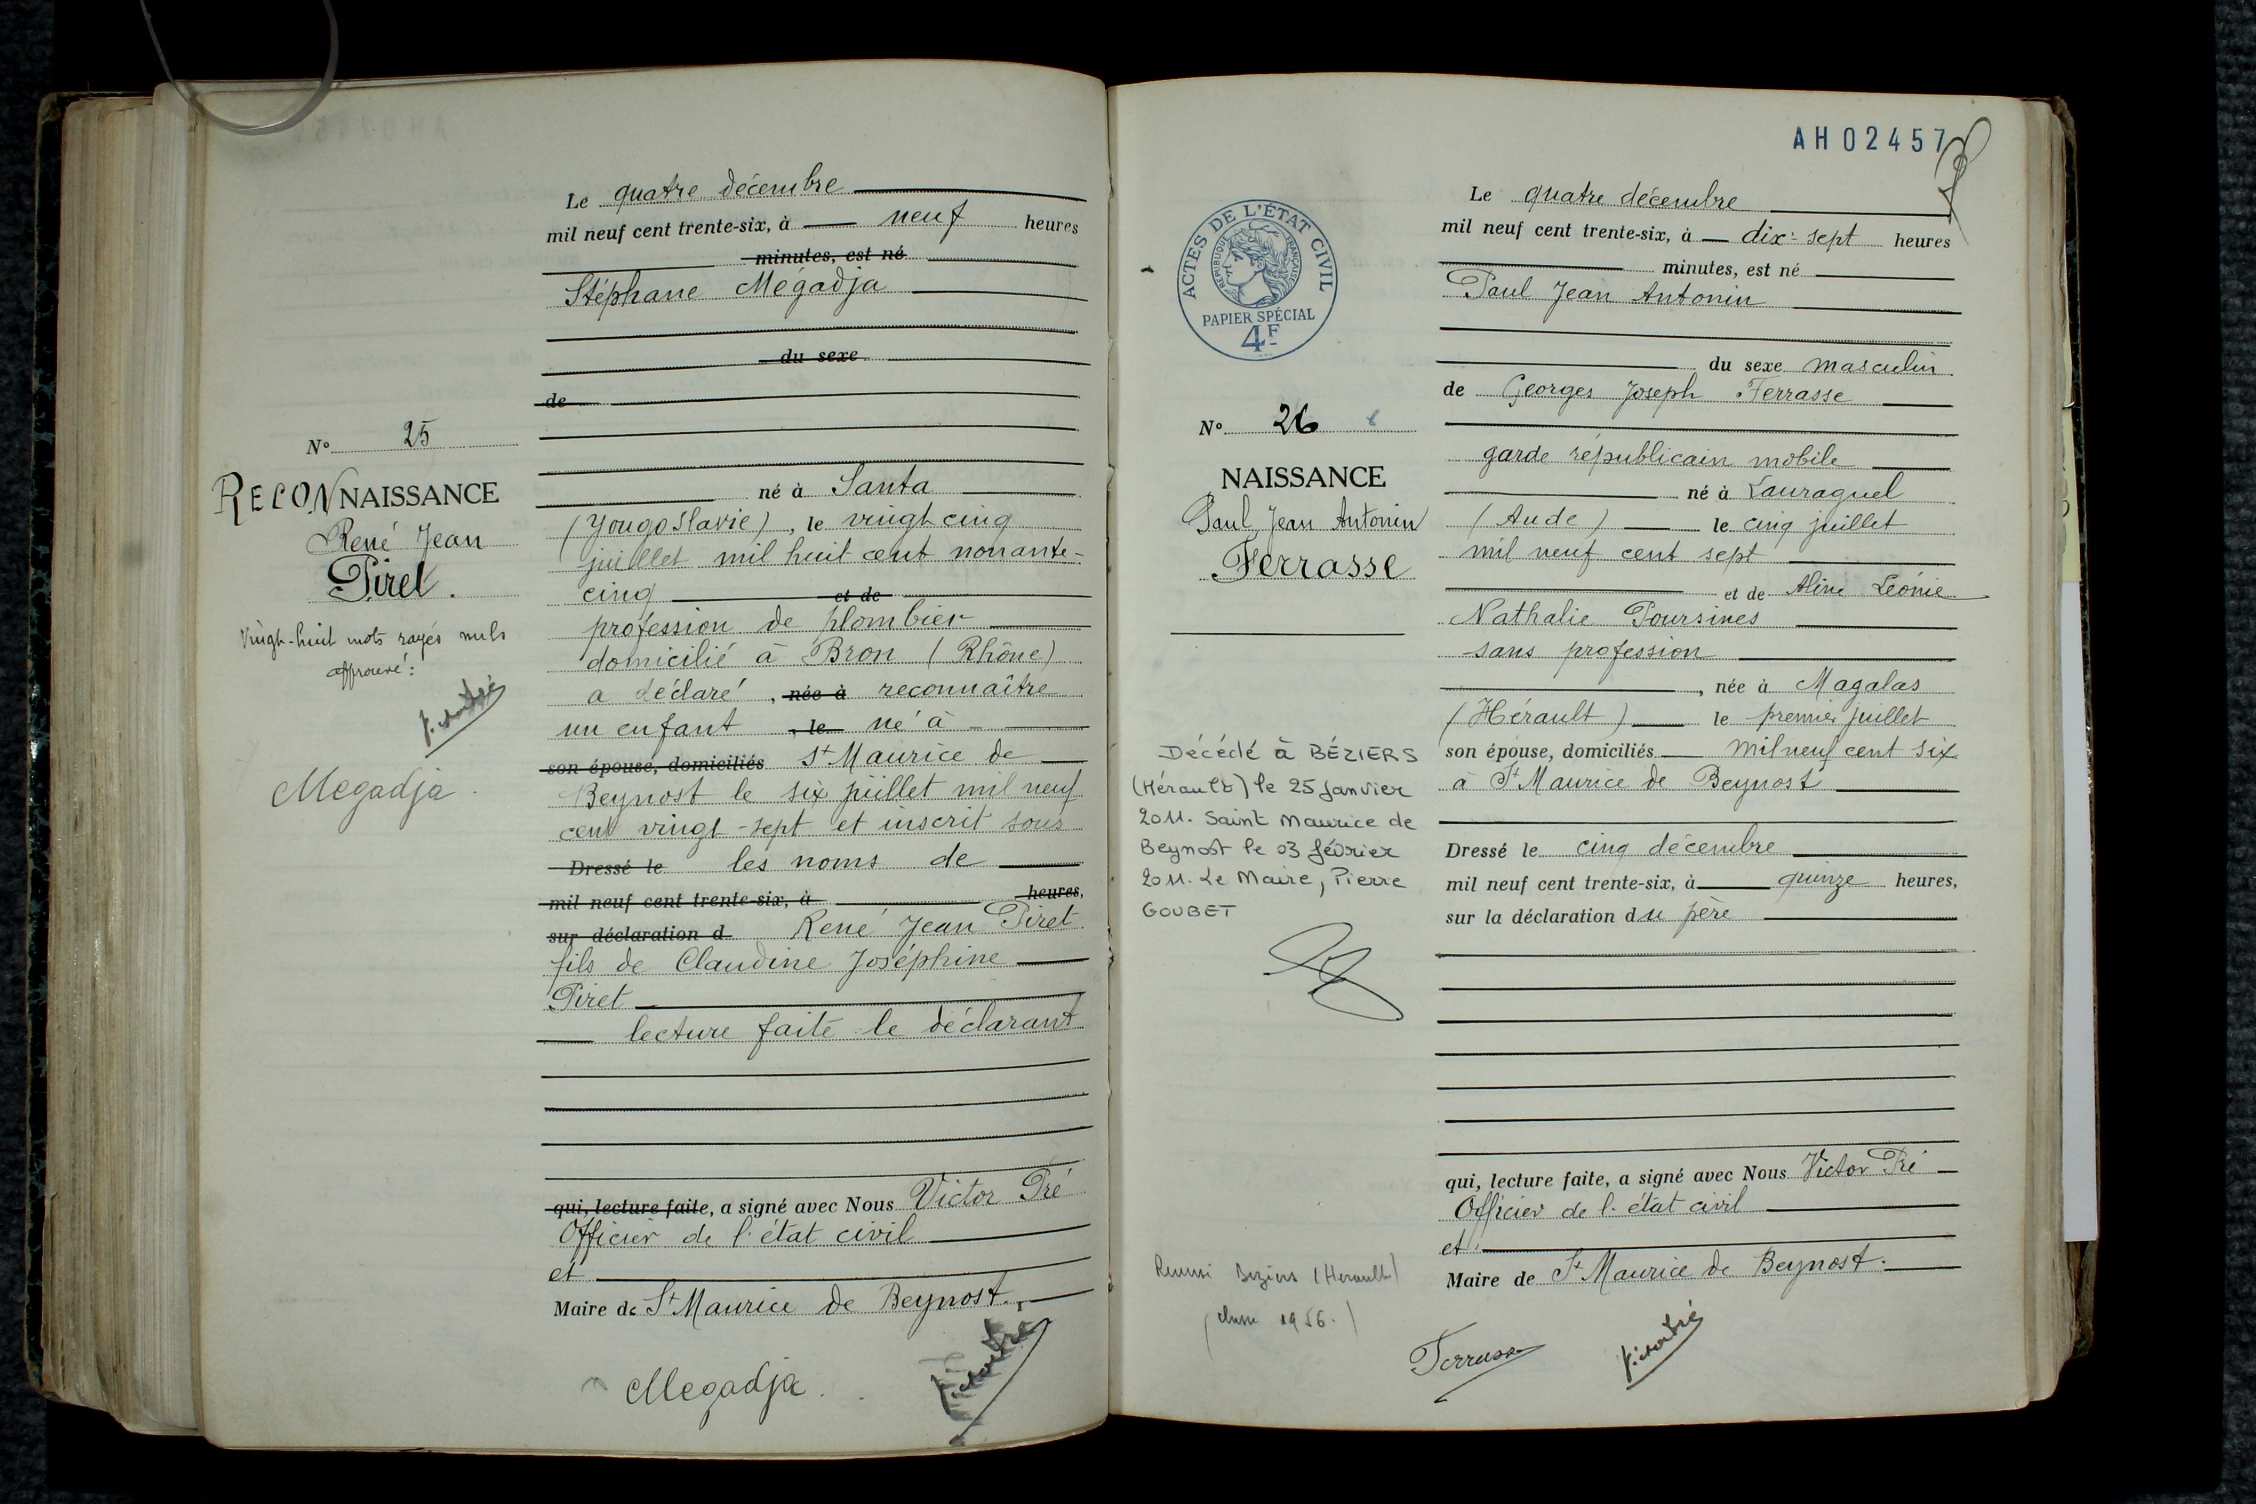 Le quatre décembre
mil neuf cent trente-six, à neuf heures
minutes, est né
Stéphane Mégadja
du sexe
de
N° 25
RECONNAISSANCE
René Jean
Piret.
Vingt-huit mots rayés nuls
approuvé:
Megadja.
né à Santa
(Yougoslavie), le vingt cinq
juillet mil huit cent nonante-
cinq et de
profession de plombier
domicilié à Bron (Rhône)
a déclaré, née à reconnaître
un enfant, le né à
son épouse, domiciliés St Maurice de
Beynost le six juillet mil neuf
cent vingt-sept et inscrit sous
Dressé le les noms de
mil neuf cent trente-six, à heures,
sur déclaration d René Jean Piret
fils de Claudine Joséphine
Piret
lecture faite le déclarant
qui, lecture faite, a signé avec Nous Victor Pré
Officier de l'état civil
et
Maire de St Maurice de Beynost.
Megadja.
AH02457
ACTES DE L'ÉTAT CIVIL
RÉPUBLIQUE FRANÇAISE
PAPIER SPÉCIAL
4F
N° 26 6
NAISSANCE
Paul Jean Antonin
Ferrasse
Décédé à BÉZIERS
(Hérault) le 25 janvier
2011. Saint Maurice de
Beynost le 03 février
2011. Le Maire, Pierre
GOUBET
Béziers (Herault)
(classe 1956.)
Le quatre décembre
mil neuf cent trente-six, à dix-sept heures
minutes, est né
Paul Jean Antonin
du sexe masculin
de Georges Joseph Ferrasse
garde républicain mobile
né à Lauraguel
(Aude) le cinq juillet
mil neuf cent sept
et de Aline Léonie
Nathalie Poursines
sans profession
, née à Magalas
(Hérault) le premier juillet
son épouse, domiciliés mil neuf cent six
à St Maurice de Beynost
Dressé le cinq décembre
mil neuf cent trente-six, à quinze heures,
sur la déclaration du père
qui, lecture faite, a signé avec Nous Victor Pré
Officier de l'état civil
et
Maire de St Maurice de Beynost.
Ferrasse